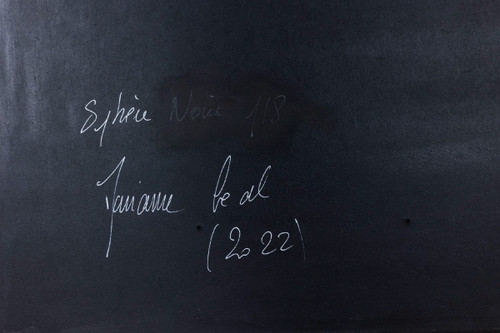 Sphère Noire 1/8
Marianne
(2022)